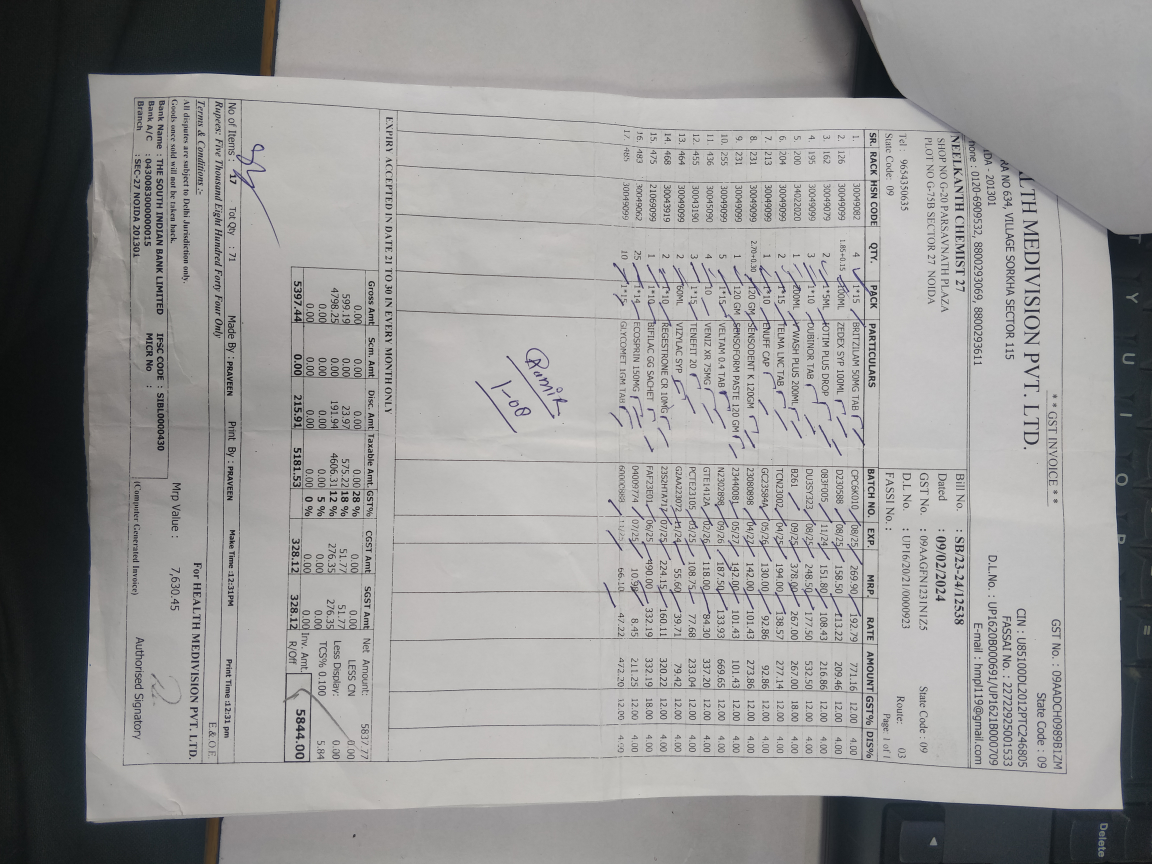 ** GST INVOICE **
GST No. : 09AADCH0989B1ZM
State Code : 09
LTH MEDIVISION PVT. LTD.
CIN : U85100DL2012PTC246805
RA NO 634, VILLAGE SORKHA SECTOR 115
FASSAI No. : 22722925001533
IDA - 201301
D.L.No. : UP1620B000691/UP1621B000709
hone : 0120-6909532, 8800293069, 8800293611
E-mail : hmpl119@gmail.com
NEELKANTH CHEMIST 27
Bill No. : SB/23-24/12538
SHOP NO G-20 PARSAVNATH PLAZA
Dated : 09/02/2024
PLOT NO G-75B SECTOR 27 NOIDA
GST No. : 09AAGFN1231N1Z5
State Code : 09
Tel : 9654350635
D.L No. : UP16/20/21/0000923
Route: 03
State Code: 09
FASSI No. :
Page: 1 of 1
SR. RACK HSN CODE QTY. PACK PARTICULARS BATCH NO. EXP. MRP RATE AMOUNT GST% DIS%
1. 30049082 4 1*15 BRITZILAM 50MG TAB CPCGK010 08/25 269.90 192.79 771.16 12.00 4.00
2. 126 30049099 1.85+0.15 100ML ZEDEX SYP 100ML D230588 08/25 158.50 113.22 209.46 12.00 4.00
3. 162 30049079 2 1*5ML OTIM PLUS DROP 083F005 11/24 151.80 108.43 216.86 12.00 4.00
4. 195 30049099 3 1*10 DUBINOR TAB DU3SY233 08/25 248.50 177.50 532.50 12.00 4.00
5. 200 34022020 1 200ML V WASH PLUS 200ML B261 09/25 378.00 267.00 267.00 18.00 4.00
6. 204 30049099 2 1*15 TELMA LNC TAB TCN23002 04/25 194.00 138.57 277.14 12.00 4.00
7. 213 30049099 1 1*10 ENUFF CAP GC23584A 05/26 130.00 92.86 92.86 12.00 4.00
8. 231 30049099 2.70+0.30 120 GM SENSODENT K 120GM 23080898 04/27 142.00 101.43 273.86 12.00 4.00
9. 231 30049099 1 120 GM SENSOFORM PASTE 120 GM 23440081 05/27 142.00 101.43 101.43 12.00 4.00
10. 255 30049099 5 1*15 VELTAM 0.4 TAB N2302898 09/26 187.50 133.93 669.65 12.00 4.00
11. 436 30045090 4 10 VENIZ XR 75MG GTE1412A 02/26 118.00 84.30 337.20 12.00 4.00
12. 455 30043190 3 1*15 TENEFIT 20 PCTE23105 03/25 108.75 77.68 233.04 12.00 4.00
13. 464 30049099 2 60ML VIZYLAC SYP G2AA223072 11/24 55.60 39.71 79.42 12.00 4.00
14. 468 30043919 2 1*10 REGESTRONE CR 10MG 23S2HTA717 07/25 224.15 160.11 320.22 12.00 4.00
15. 475 21069099 1 1*10 BIFILAC GG SACHET FAF23E01 06/25 490.00 332.19 332.19 18.00 4.00
16. 483 30049062 25 1*14 ECOSPRIN 150MG 04000774 07/25 10.98 8.45 211.25 12.00 4.00
17. 485 30049099 10 1*15 GLYCOMET 1GM TAB 11/25 66.10 47.22 472.20 12.00 4.00
1-00
EXPIRY ACCEPTED IN DATE 21 TO 30 IN EVERY MONTH ONLY
Gross Amt Scm. Amt Disc. Amt Taxable Amt GST% CGST Amt SGST Amt
0.00 0.00 0.00 28 % 0.00 0.00
599.19 0.00 23.97 575.22 18 % 51.77 51.77
4798.25 0.00 191.94 4606.31 12 % 276.35 276.35
0.00 0.00 0.00 0.00 5 % 0.00 0.00
0.00 0.00 0.00 0.00 0 % 0.00 0.00
5397.44 0.00 215.91 5181.53 328.12 328.12
Net Amount: 5837.77
LESS CN 0.00
Less Display: 0.00
TCS% 0.100 5.84
Inv. Amt 5844.00
R/Off
No of Items : 17 Tot Qty : 71 Made By : PRAVEEN Print By : PRAVEEN Make Time :12:31PM Print Time :12:31 pm
Rupees: Five Thousand Eight Hundred Forty Four Only
E.& O.E
Terms & Conditions :-
All disputes are subject to Delhi Jurisdiction only.
Goods once sold will not be taken back.
Mrp Value : 7,630.45
For HEALTH MEDIVISION PVT. LTD.
Bank Name : THE SOUTH INDIAN BANK LIMITED IFSC CODE : SIBL0000430
Bank A/C : 0430083000000015 MICR No :
Branch : SEC-27 NOIDA 201301
(Computer Generated Invoice)
Authorised Signatory
Y
U
I
O
Delete